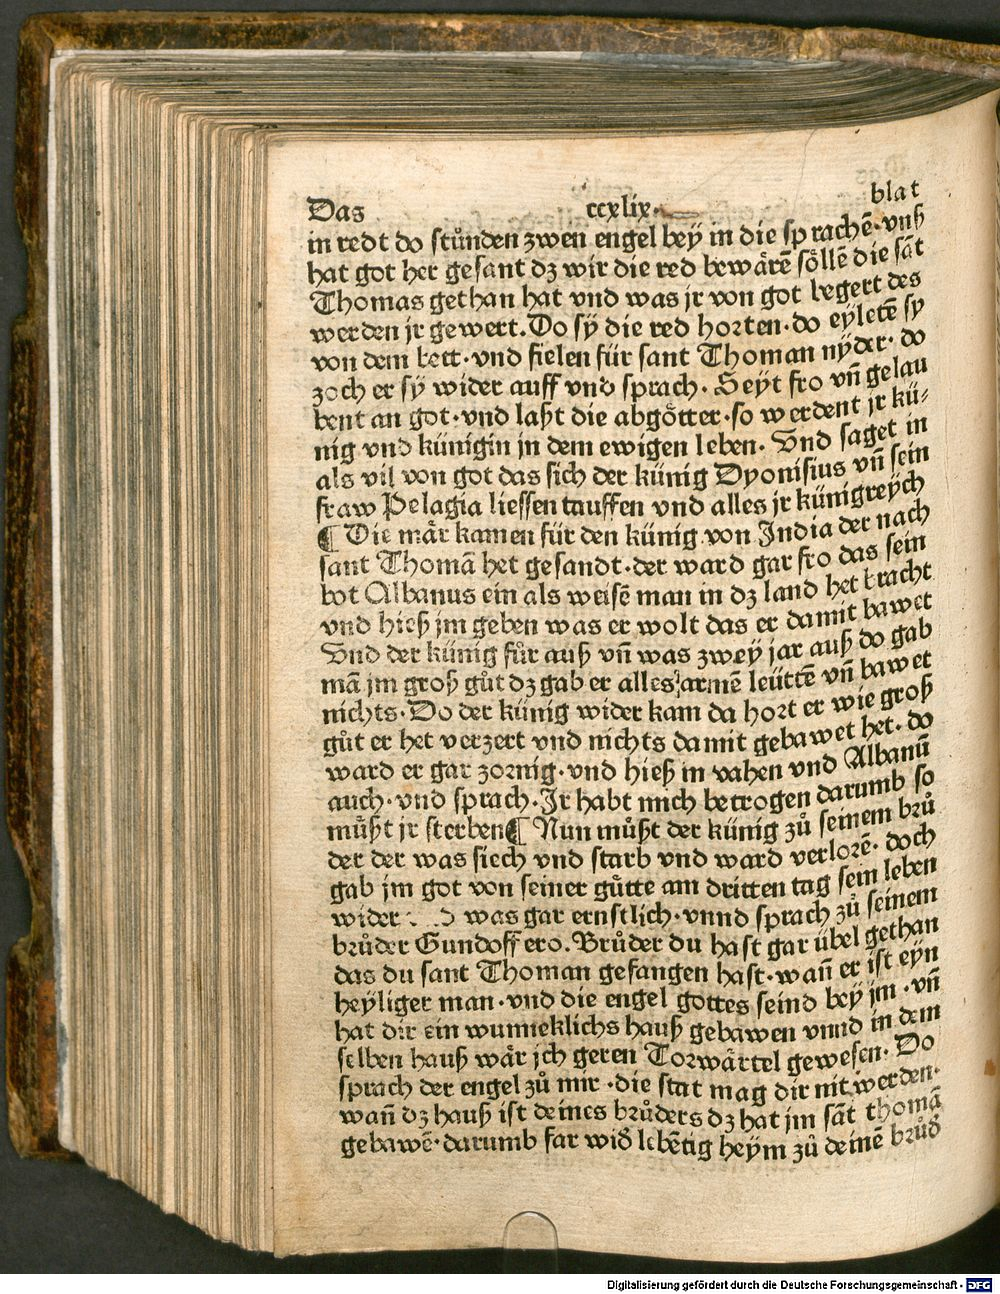 Das ccxlix. blat
in redt do stůnden zwen engel bey in die sprachē·vnß
hat got her gesant dz wir die red bewärē söllē die sāt
Thomas gethan hat vnd was jr von got begert des
werden jr gewert. Do sÿ die red horten·do eyletē sy
von dem bett·vnd fielen für sant Thoman nÿder·do
zoch er sÿ wider auff vnd sprach. Seyt fro vn̄ gelau
bent an got·vnd laßt die abgötter·so werdent jr kü⸗
nig vnd künigin jn dem ewigen leben. Vnd saget in
als vil von got das sich der künig Dyonisius vn̄ sein
fraw Pelagia liessen tauffen vnd alles jr künigreych
¶ Die mär kamen für den künig von India der nach
sant Thomā het gesandt·der ward gar fro das sein
bot Albanus ein als weisē man in dz land het bracht
vnd hieß jm geben was er wolt das er damit bawet
Vnd der künig fůr auß vn̄ was zwey jar auß do gab
mā jm groß gůt dz gab er alles armē leüttē vn̄ bawet
nichts. Do der künig wider kam da hort er wie groß
gůt er het verzert vnd nichts damit gebawet het·do
ward er gar zornig·vnd hieß in vahen vnd Albanū
auch·vnd sprach. Jr habt mich betrogen darumb so
müßt jr sterben ¶ Nun můßt der künig zů seinem brů
der der was siech vnd starb vnd ward verlorē·doch
gab jm got von seiner gůtte am dritten tag sein leben
wider was gar ernstlich·vnnd sprach zů seinem
brůder Gundoffero. Brůder du hast gar übel gethan
das du sant Thoman gefangen hast·wan̄ er ist eyn
heyliger man·vnd die engel gottes seind bey jm·vn̄
hat dir ein wunneklichs hauß gebawen vnnd in dem
selben hauß wär jch geren Torwärtel gewesen. Do
sprach der engel zů mir·die stat mag dir nit werden·
wan̄ dz hauß ist deines brůders dz hat jm sāt thomā
gebawē·darumb far wid̄ lebētig heym zů deinē brůd̄
Digitalisierung gefördert durch die Deutsche Forschungsgemeinschaft - DFG